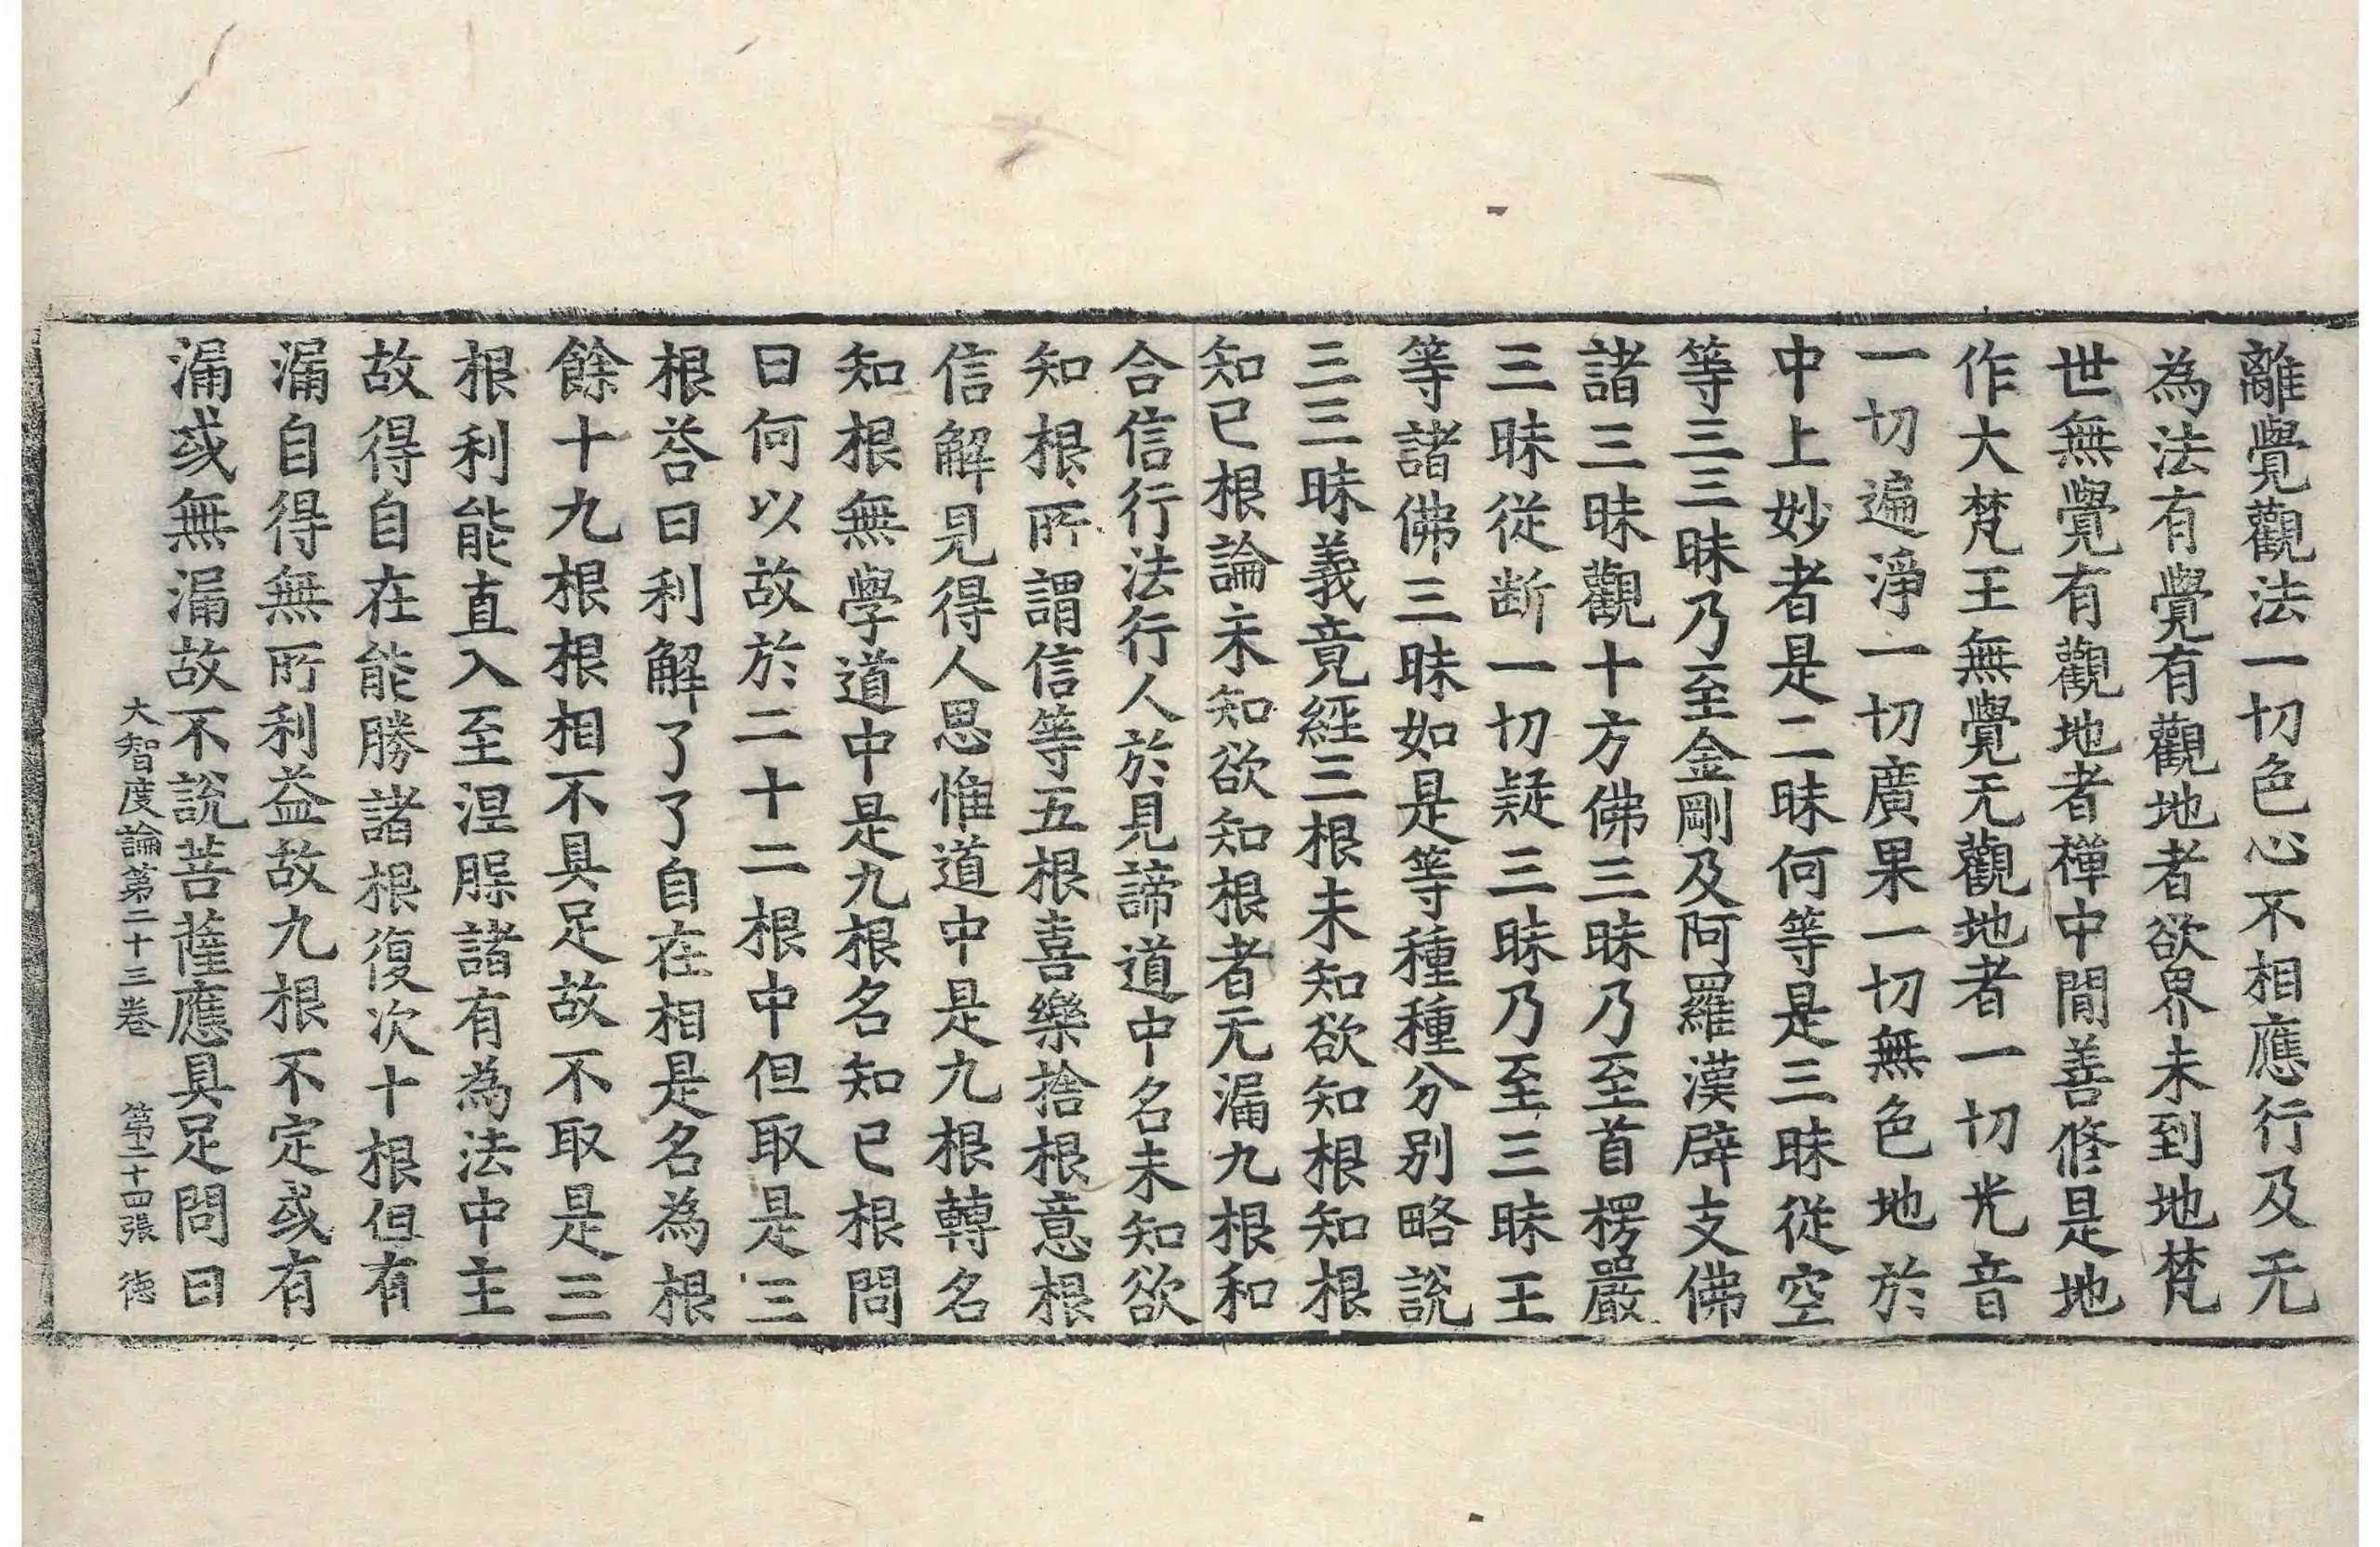 離覺觀法一切色心不相應行及无
為法有覺有觀地者欲界未到地梵
世無覺有觀地者禪中閒善修是地
作大梵王無覺无觀地者一切光音
一切遍淨一切廣果一切無色地於
中上妙者是三昧何等是三昧從空
等三三昧乃至金剛及阿羅漢辟支佛
諸三昧觀十方佛三昧乃至首楞嚴
三昧從断一切疑三昧乃至三昧王
等諸佛三昧如是等種種分别略說
三三昧義竟經三根未知欲知根知根
知已根論未知欲知根者无漏九根和
合信行法行人於見諦道中名未知欲
知根所謂信等五根喜樂捨根意根
信解見得人思惟道中是九根轉名
知根無學道中是九根名知已根問
曰何以故於二十二根中但取是三
根荅曰利解了了自在相是名為根
餘十九根根相不具足故不取是三
根利能直入至涅槃諸有為法中主
故得自在能勝諸根復次十根但有
漏自得無所利益故九根不定或有
漏或無漏故不說菩薩應具足問曰
大智度論第二十三卷 第二十四張 德